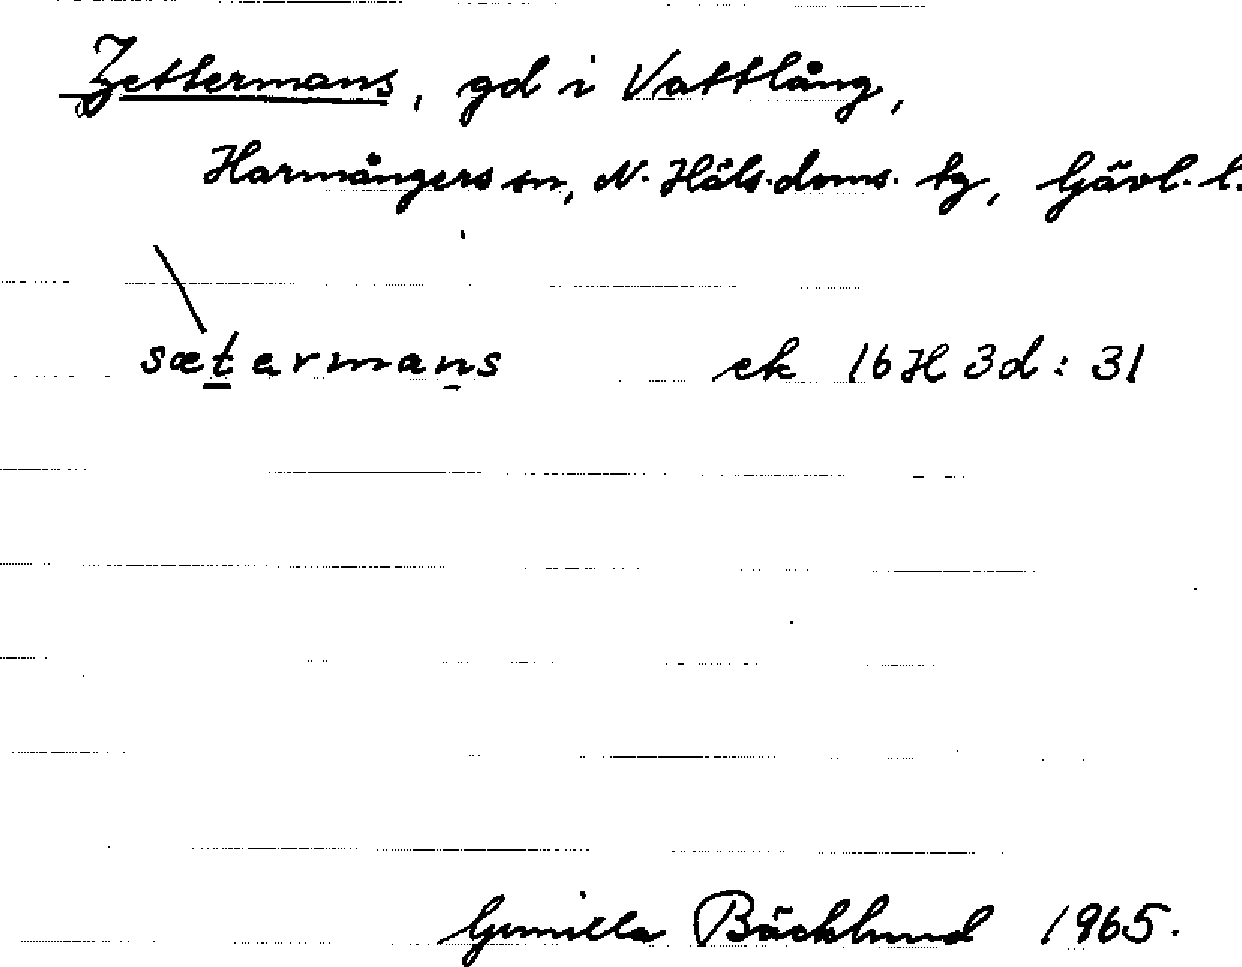 Zettermans, gd i Vattlång,
Harmångers sn, N. Häls. doms. tg, Gävl. l.
sætermans ek 16H 3d: 31
Gunilla Bäcklund 1965.